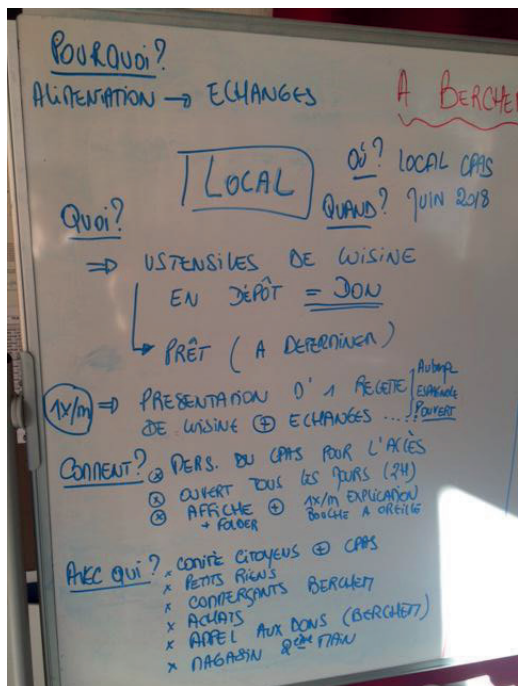 POURQUOI?
ALIMENTATION → ECHANGES
A BERCHEM
1 LOCAL
OÙ? LOCAL CPAS
QUAND? JUIN 2018
QUOI?
⇒ USTENSILES DE CUISINE
EN DÉPÔT = DON
PRÊT (A DETERMINER)
1x/m ⇒ PRESENTATION D' 1 RECETTE
DE CUISINE ⊕ ECHANGES ...
ESPAGNOLE
COMMENT? ⊗ PERS. DU CPAS POUR L'ACCÈS
⊗ OUVERT TOUS LES JOURS (2H)
⊗ AFFICHE ⊕ 1x/m EXPLICATION
+ FOLDER BOUCHE A OREILLE
AVEC QUI? x COMITÉ CITOYENS ⊕ CPAS
x PETITS RIENS
x COMMERÇANTS BERCHEM
x ACHATS
x APPEL AUX DONS (BERCHEM)
x MAGASIN 2ème MAIN